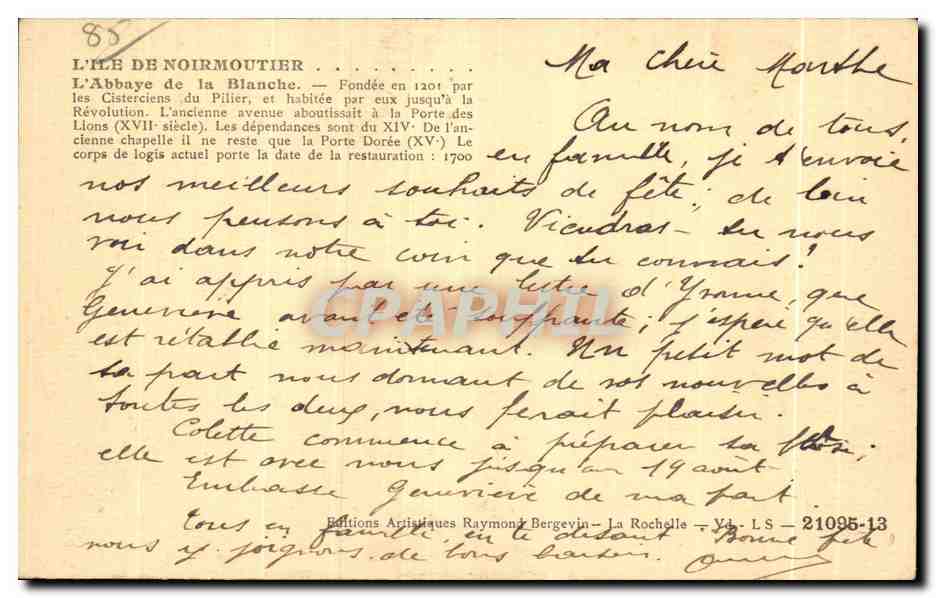 85
L'ILE DE NOIRMOUTIER . . . . . . . . . .
L'Abbaye de la Blanche. — Fondée en 1201 par
les Cisterciens du Pilier, et habitée par eux jusqu'à la
Révolution. L'ancienne avenue aboutissait à la Porte des
Lions (XVIIᵉ siècle). Les dépendances sont du XIVᵉ De l'an-
cienne chapelle il ne reste que la Porte Dorée (XVᵉ) Le
corps de logis actuel porte la date de la restauration : 1700
Ma chère Marthe
Au nom de tous,
en famille, je t'envoie
nos meilleurs souhaits de fête; de loin
nous pensons à toi. Viendras-tu nous
voir dans notre coin que tu connais?
J'ai appris par une lettre d'Yvonne, que
Geneviève avait été souffrante; j'espère qu'elle
est rétablie maintenant. Un petit mot de
ta part nous donnant de vos nouvelles à
toutes les deux, nous ferait plaisir.
Colette commence à préparer sa
elle est avec nous jusqu'au 19 août
Embrasse Geneviève de ma part
tous en famille, en te disant Bonne fête
nous y joignons de bons baisers.
Editions Artistiques Raymond Bergevin — La Rochelle — Vd - L S — 21095-13
CPAPHIL